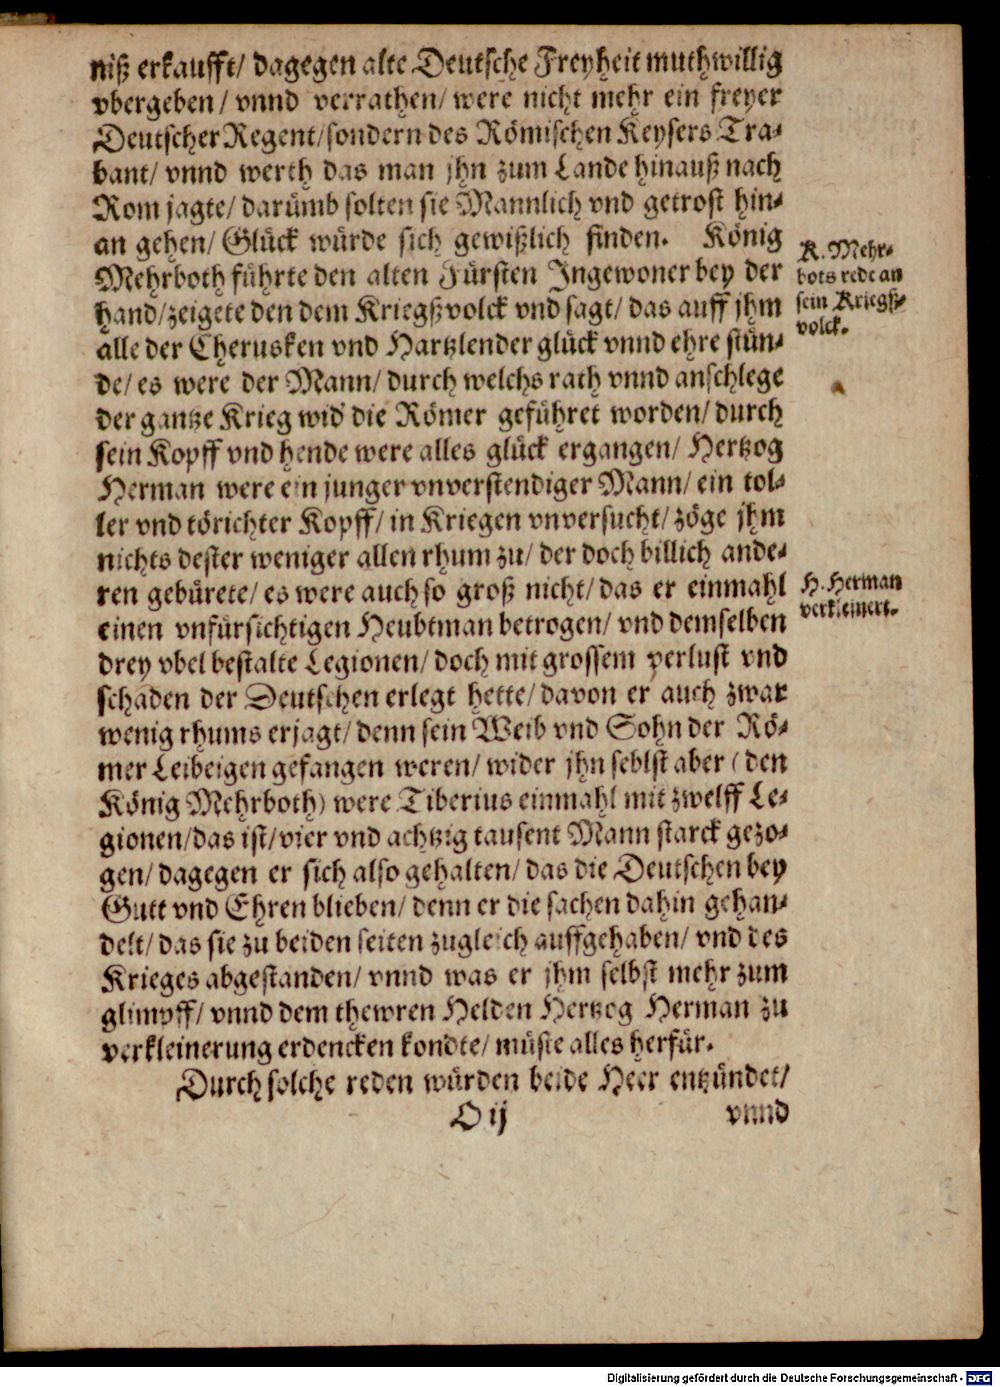 niß erkaufft/ dagegen alte Deutsche Freyheit muthwillig
vbergeben/ vnnd verrathen/ were nicht mehr ein freyer
Deutscher Regent/ sondern des Römischen Keysers Tra-
bant/ vnnd werth das man jhn zum Lande hinauß nach
Rom jagte/ darümb solten sie Mannlich vnd getrost hin-
an gehen/ Glück würde sich gewißlich finden. König
Mehrboth führte den alten Fürsten Ingewoner bey der
hand/ zeigete den dem Kriegßvolck vnd sagt/ das auff jhm
alle der Cherusken vnd Hartzlender glück vnnd ehre stün-
de/ es were der Mann/ durch welchs rath vnnd anschlege
der gantze Krieg wid die Römer geführet worden/ durch
sein Kopff vnd hende were alles glück ergangen/ Hertzog
Herman were ein junger vnverstendiger Mann/ ein tol-
ler vnd törichter Kopff/ in Kriegen vnversucht/ zöge jhm
nichts dester weniger allen rhum zu/ der doch billich ande-
ren gebürete/ es were auch so groß nicht/ das er einmahl
einen vnfürsichtigen Heubtman betrogen/ vnd demselben
drey vbel bestalte Legionen/ doch mit grossem verlust vnd
schaden der Deutschen erlegt hette/ davon er auch zwar
wenig rhums erjagt/ denn sein Weib vnd Sohn der Rö-
mer Leibeigen gefangen weren/ wider jhn seblst aber (den
König Mehrboth) were Tiberius einmahl mit zwelff Le-
gionen/ das ist/ vier vnd achtzig tausent Mann starck gezo-
gen/ dagegen er sich also gehalten/ das die Deutschen bey
Gutt vnd Ehren blieben/ denn er die sachen dahin gehan-
delt/ das sie zu beiden seiten zugleich auffgehaben/ vnd des
Krieges abgestanden/ vnnd was er jhm selbst mehr zum
glimpff/ vnnd dem thewren Helden Hertzog Herman zu
verkleinerung erdencken kondte/ müste alles herfür.
Durch solche reden würden beide Heer entzündet/
O ij
vnnd
K. Mehr-
bots rede an
sein Kriegß-
volck.
H. Herman
verkleinert.
Digitalisierung gefördert durch die Deutsche Forschungsgemeinschaft - DFG